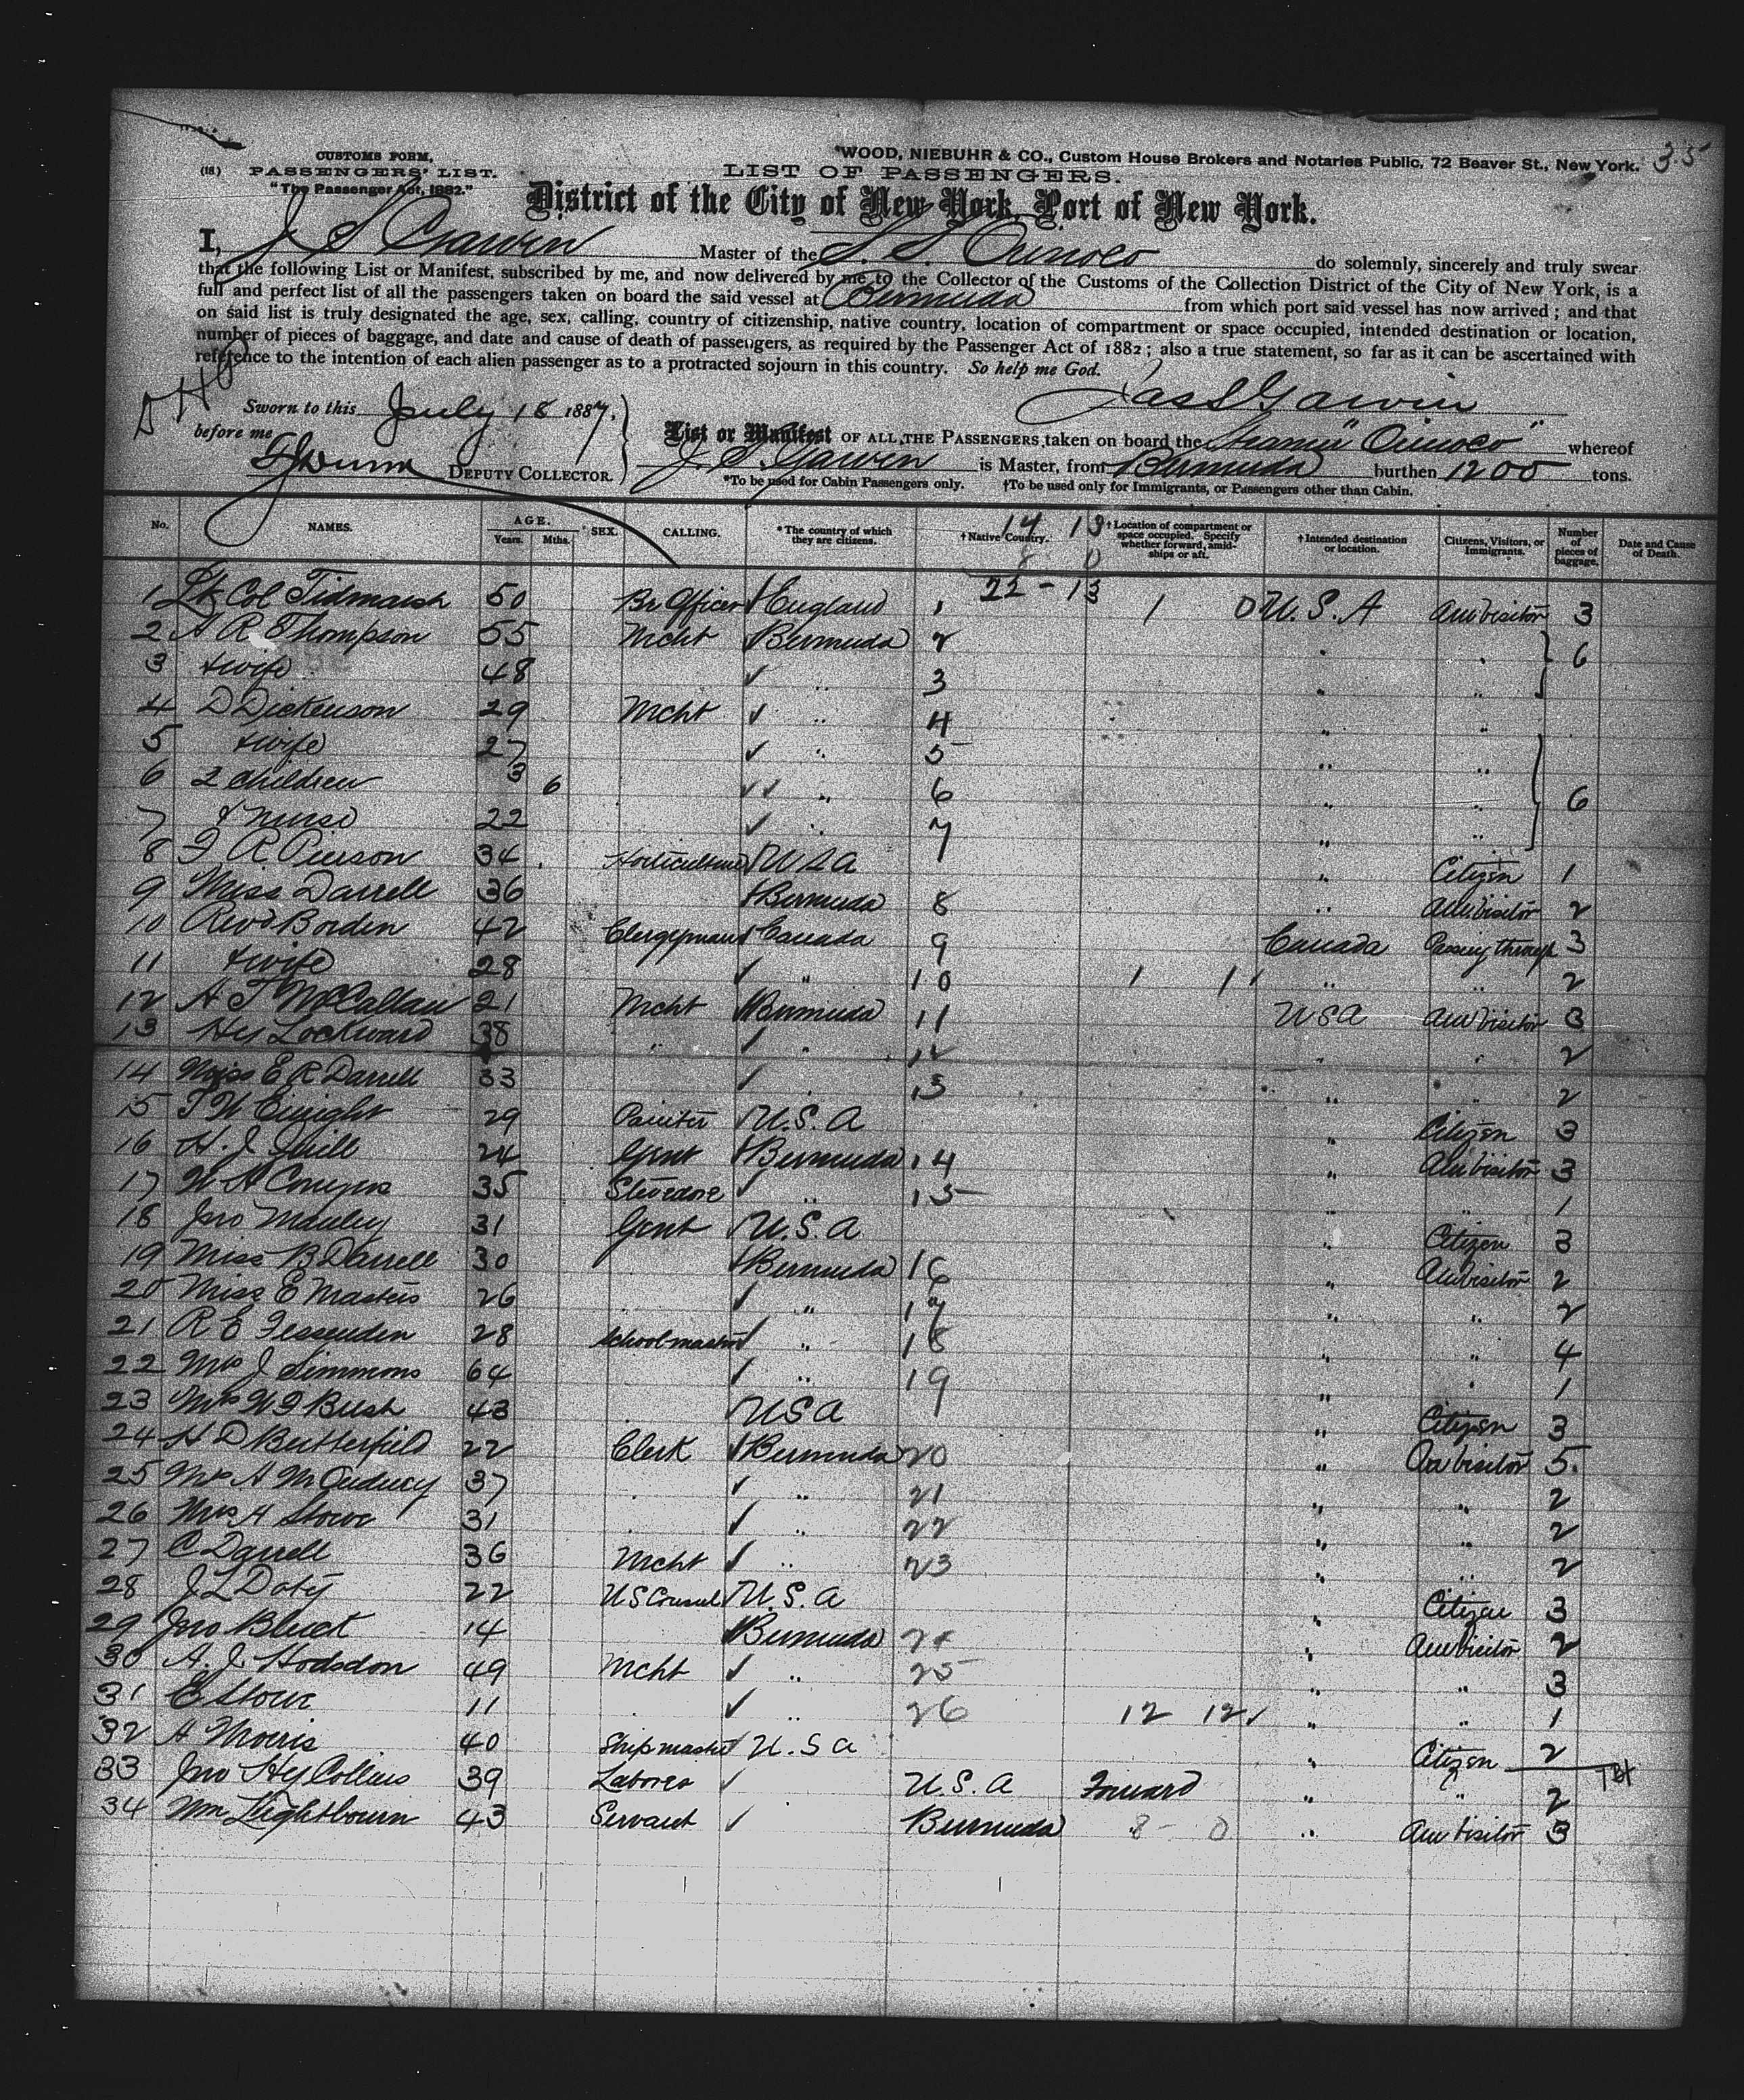 35
CUSTOMS FORM,
(18) PASSENGERS' LIST.
"The Passenger Act, 1882."
*WOOD, NIEBUHR & CO., Custom House Brokers and Notaries Public, 72 Beaver St., New York.
LIST OF PASSENGERS.
District of the City of New York, Port of New York.
I, J S Garvin Master of the S. S. Orinoco do solemnly, sincerely and truly swear
that the following List or Manifest, subscribed by me, and now delivered by me to the Collector of the Customs of the Collection District of the City of New York, is a
full and perfect list of all the passengers taken on board the said vessel at Bermuda from which port said vessel has now arrived; and that
on said list is truly designated the age, sex, calling, country of citizenship, native country, location of compartment or space occupied, intended destination or location,
number of pieces of baggage, and date and cause of death of passengers, as required by the Passenger Act of 1882; also a true statement, so far as it can be ascertained with
reference to the intention of each alien passenger as to a protracted sojourn in this country. So help me God.
Jas S Garvin
Sworn to this July 18 1887,
before me
DEPUTY COLLECTOR.
List or Manifest OF ALL THE PASSENGERS taken on board the Steamer "Orinoco" whereof
J. S. Garvin is Master, from Bermuda burthen 1200 tons.
*To be used for Cabin Passengers only. †To be used only for Immigrants, or Passengers other than Cabin.
No. NAMES. AGE. Years. Mths. SEX. CALLING. *The country of which they are citizens. †Native Country. †Location of compartment or space occupied. Specify whether forward, amidships or aft. †Intended destination or location. Citizens, Visitors, or Immigrants. Number of pieces of baggage. Date and Cause of Death.
14 13
8 0
22 - 13
1 Lt Col Tidmarsh 50 Br Officer England 1 1 0 U. S. A visitor 3
2 A R Thompson 55 Mcht Bermuda 2 " " 6
3 + wife 48 " 3 " "
4 D Dickenson 29 Mcht " 4 " "
5 + wife 27 " 5 " "
6 2 children 3 6 " 6 " " 6
7 & nurse 22 " 7 " "
8 F R Pierson 34 Horticulturist U S A " Citizen 1
9 Miss Darrell 36 Bermuda 8 " visitor 2
10 Revd Borden 42 Clergyman Canada 9 Canada Passing through 3
11 + wife 28 " 10 1 1 " " 2
12 A T McCallan 21 Mcht Bermuda 11 USA visitor 3
13 Hy Lockward 38 " " 12 " " 2
14 Miss E R Darrell 33 " 13 " " 2
15 29 Painter U. S. A " Citizen 3
16 H. J. 24 Gent Bermuda 14 " visitor 3
17 W A Conyers 35 Stevedore " 15 " " 1
18 Jno Manley 31 Gent U. S. A " Citizen 3
19 Miss B Darrell 30 Bermuda 16 " visitor 2
20 Miss E Masters 26 " 17 " " 2
21 R E Fessenden 28 Schoolmaster " 18 " " 4
22 Mrs J Simmons 64 " 19 " " 1
23 Mrs W F Bush 43 USA " Citizen 3
24 H D Butterfield 22 Clerk Bermuda 20 " visitor 5
25 A M Oudney 37 " 21 " " 2
26 Mrs A Stowe 31 " 22 " " 2
27 C Darrell 36 Mcht " 23 " " 2
28 J L Doty 22 U S Consul U. S. A " Citizen 3
29 Jno Bluck 14 Bermuda 24 " visitor 2
30 A. J. Hodsdon 49 Mcht " 25 " " 3
31 E Stowe 11 " 26 12 12 " " 1
32 A Morris 40 Shipmaster U. S A " Citizen 2
33 Jno Hy Collins 39 Laborer U. S. A Forward " " 2
34 Wm Lightbourn 43 Servant Bermuda 8 - 0 " visitor 3